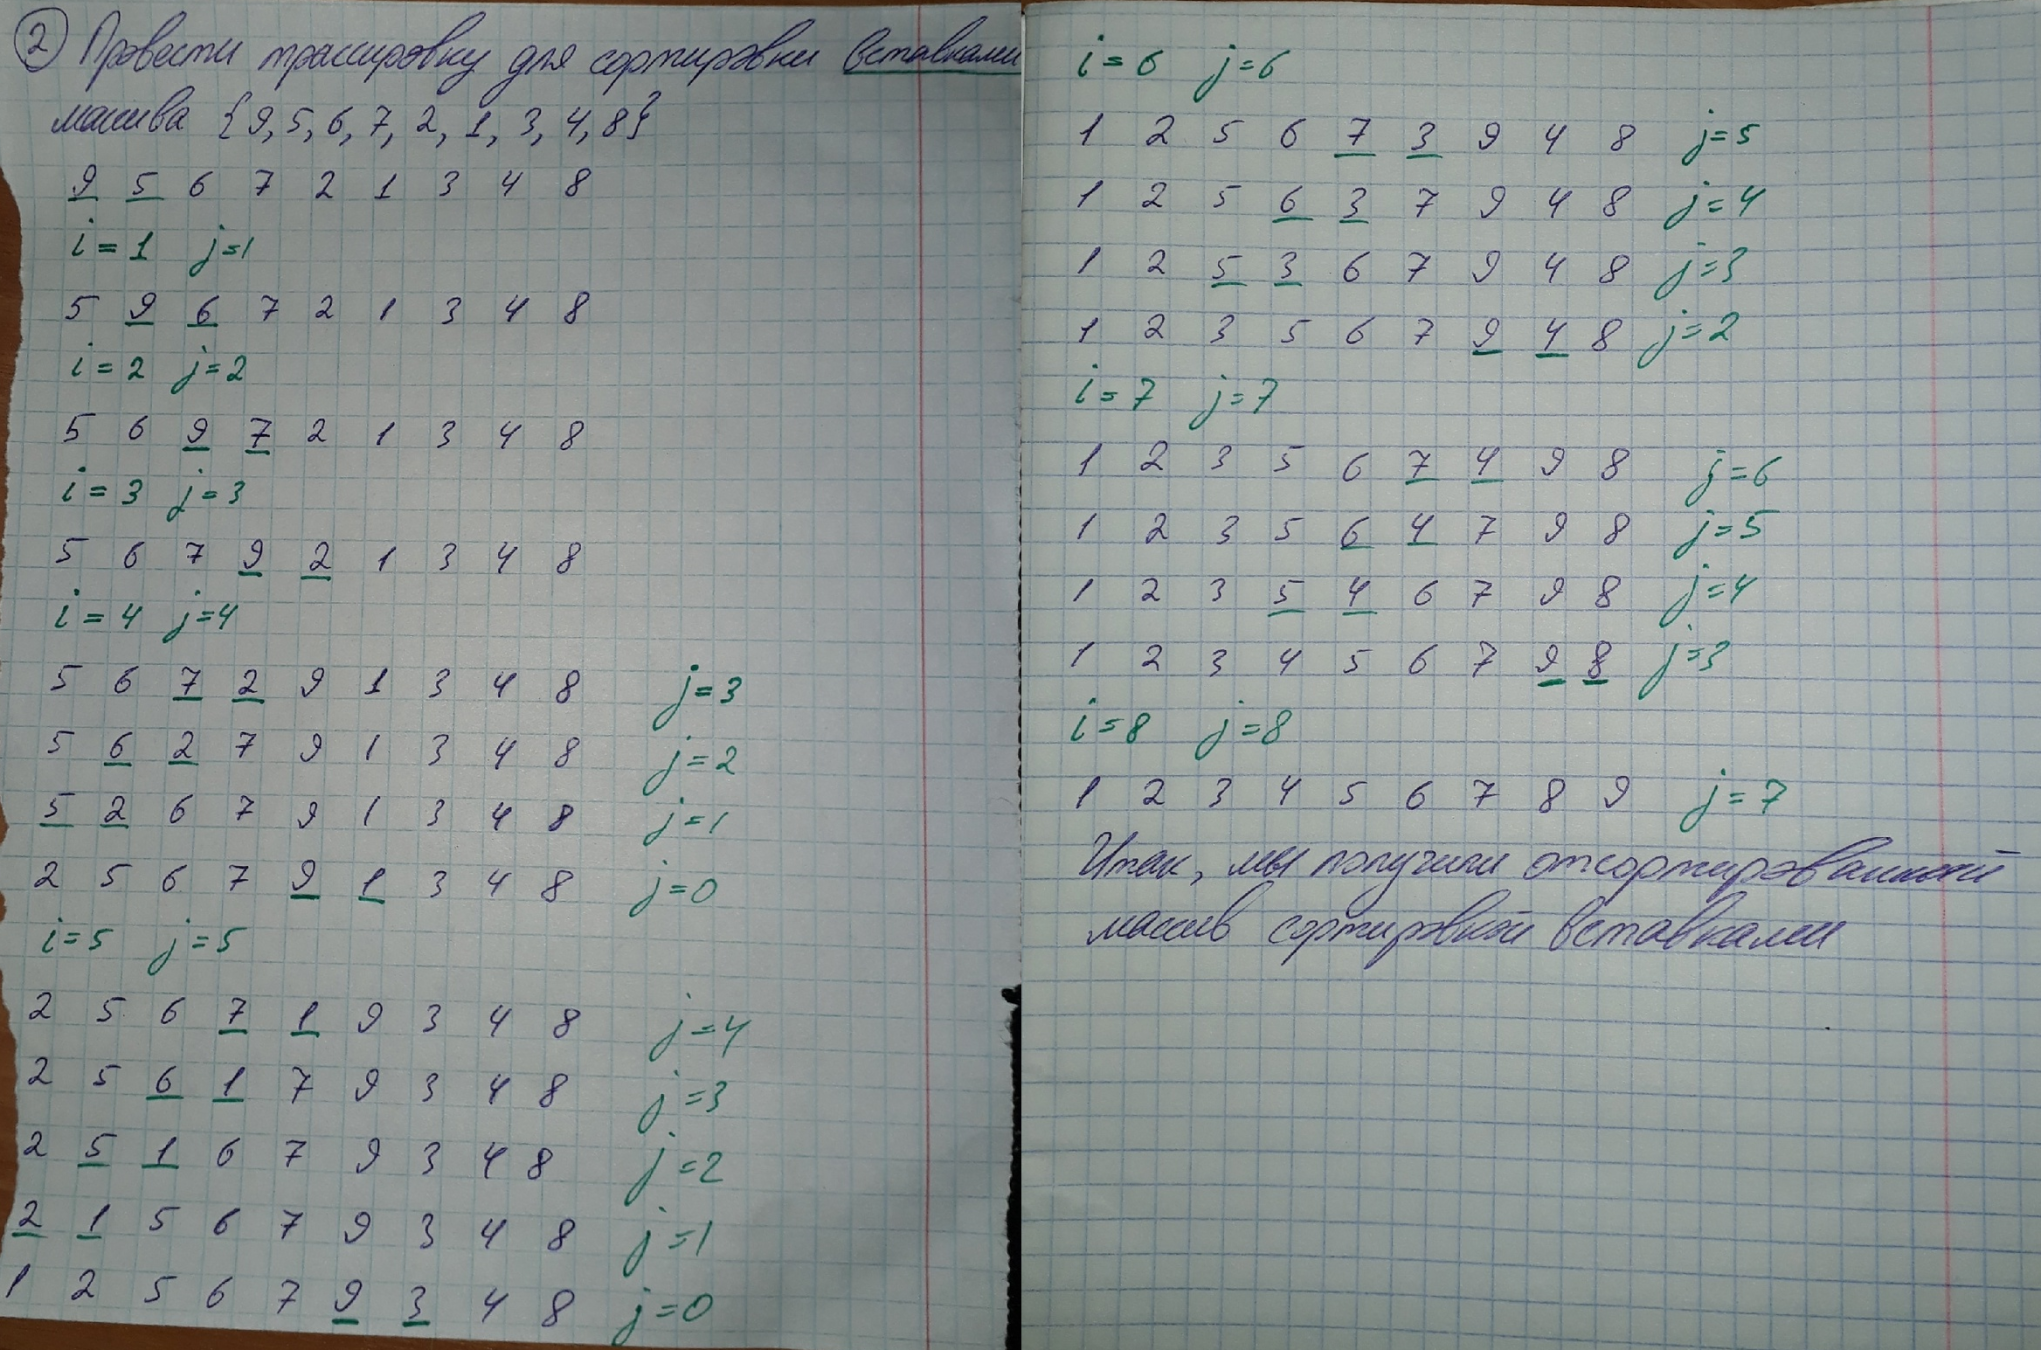 2 Провести трассировку для сортировки вставками
массива {9, 5, 6, 7, 2, 1, 3, 4, 8}
9 5 6 7 2 1 3 4 8
i = 1 j = 1
5 9 6 7 2 1 3 4 8
i = 2 j = 2
5 6 9 7 2 1 3 4 8
i = 3 j = 3
5 6 7 9 2 1 3 4 8
i = 4 j = 4
5 6 7 2 9 1 3 4 8 j = 3
5 6 2 7 9 1 3 4 8 j = 2
5 2 6 7 9 1 3 4 8 j = 1
2 5 6 7 9 1 3 4 8 j = 0
i = 5 j = 5
2 5 6 7 1 9 3 4 8 j = 4
2 5 6 1 7 9 3 4 8 j = 3
2 5 1 6 7 9 3 4 8 j = 2
2 1 5 6 7 9 3 4 8 j = 1
1 2 5 6 7 9 3 4 8 j = 0
i = 6 j = 6
1 2 5 6 7 3 9 4 8 j = 5
1 2 5 6 3 7 9 4 8 j = 4
1 2 5 3 6 7 9 4 8 j = 3
1 2 3 5 6 7 9 4 8 j = 2
i = 7 j = 7
1 2 3 5 6 7 4 9 8 j = 6
1 2 3 5 6 4 7 9 8 j = 5
1 2 3 5 4 6 7 9 8 j = 4
1 2 3 4 5 6 7 9 8 j = 3
i = 8 j = 8
1 2 3 4 5 6 7 8 9 j = 7
Итак, мы получили отсортированный
массив сортировкой вставками